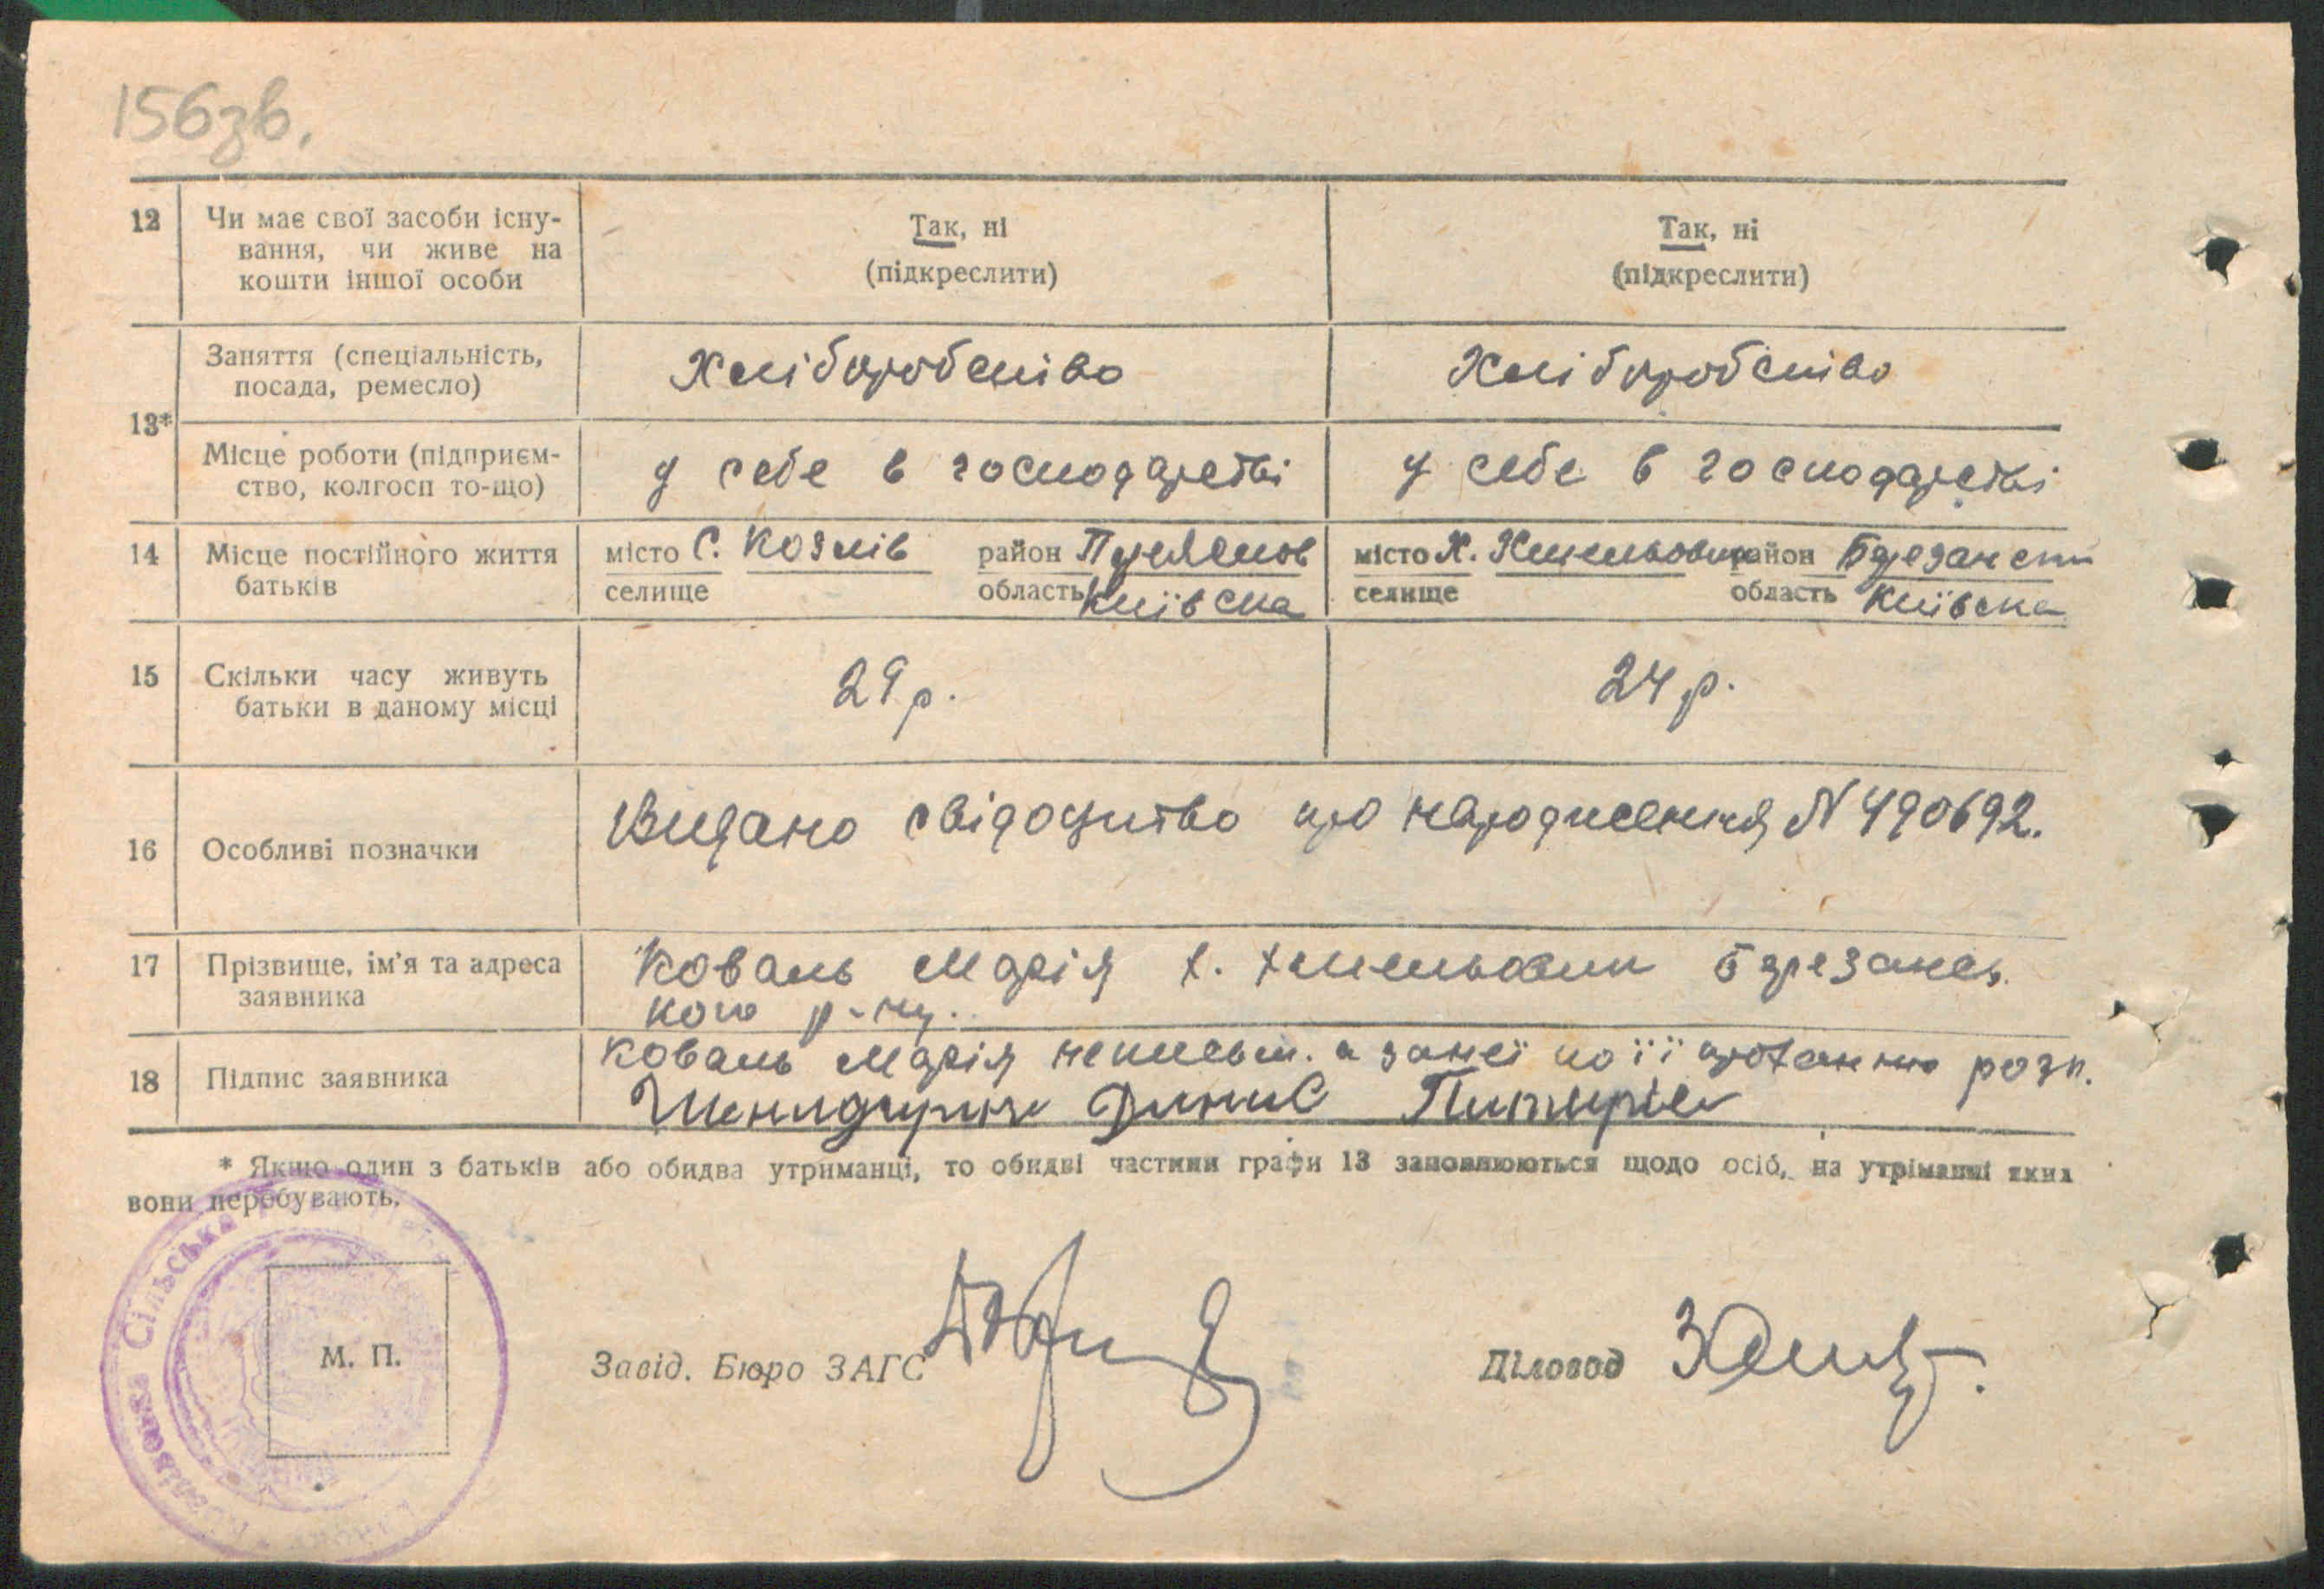 156зв.
12 Чи має свої засоби існу- Так, ні Так, ні
вання, чи живе на (підкреслити) (підкреслити)
кошти іншої особи
13* Заняття (спеціальність, Хліборобство Хліборобство
посада, ремесло)
Місце роботи (підприєм- у себе в господарстві у себе в господарстві
ство, колгосп то-що)
14 Місце постійного життя місто С. Козлів район місто Х. район
батьків селище область Київська селище область Київська
15 Скільки часу живуть 29 р. 24 р.
батьки в даному місці
16 Особливі позначки Видано свідоцтво про народження N 490692.
17 Прізвище, ім'я та адреса Коваль Марія х. Березансь
заявника кого р-ну.
18 Підпис заявника Коваль Марія неписьм. а за неї по її проханню розп.
* Якщо один з батьків або обидва утриманці, то обидві частини графи 13 заповнюються щодо осіб, на утріманні яких
вони перебувають.
Сільська
М. П. Завід. Бюро ЗАГС Діловод